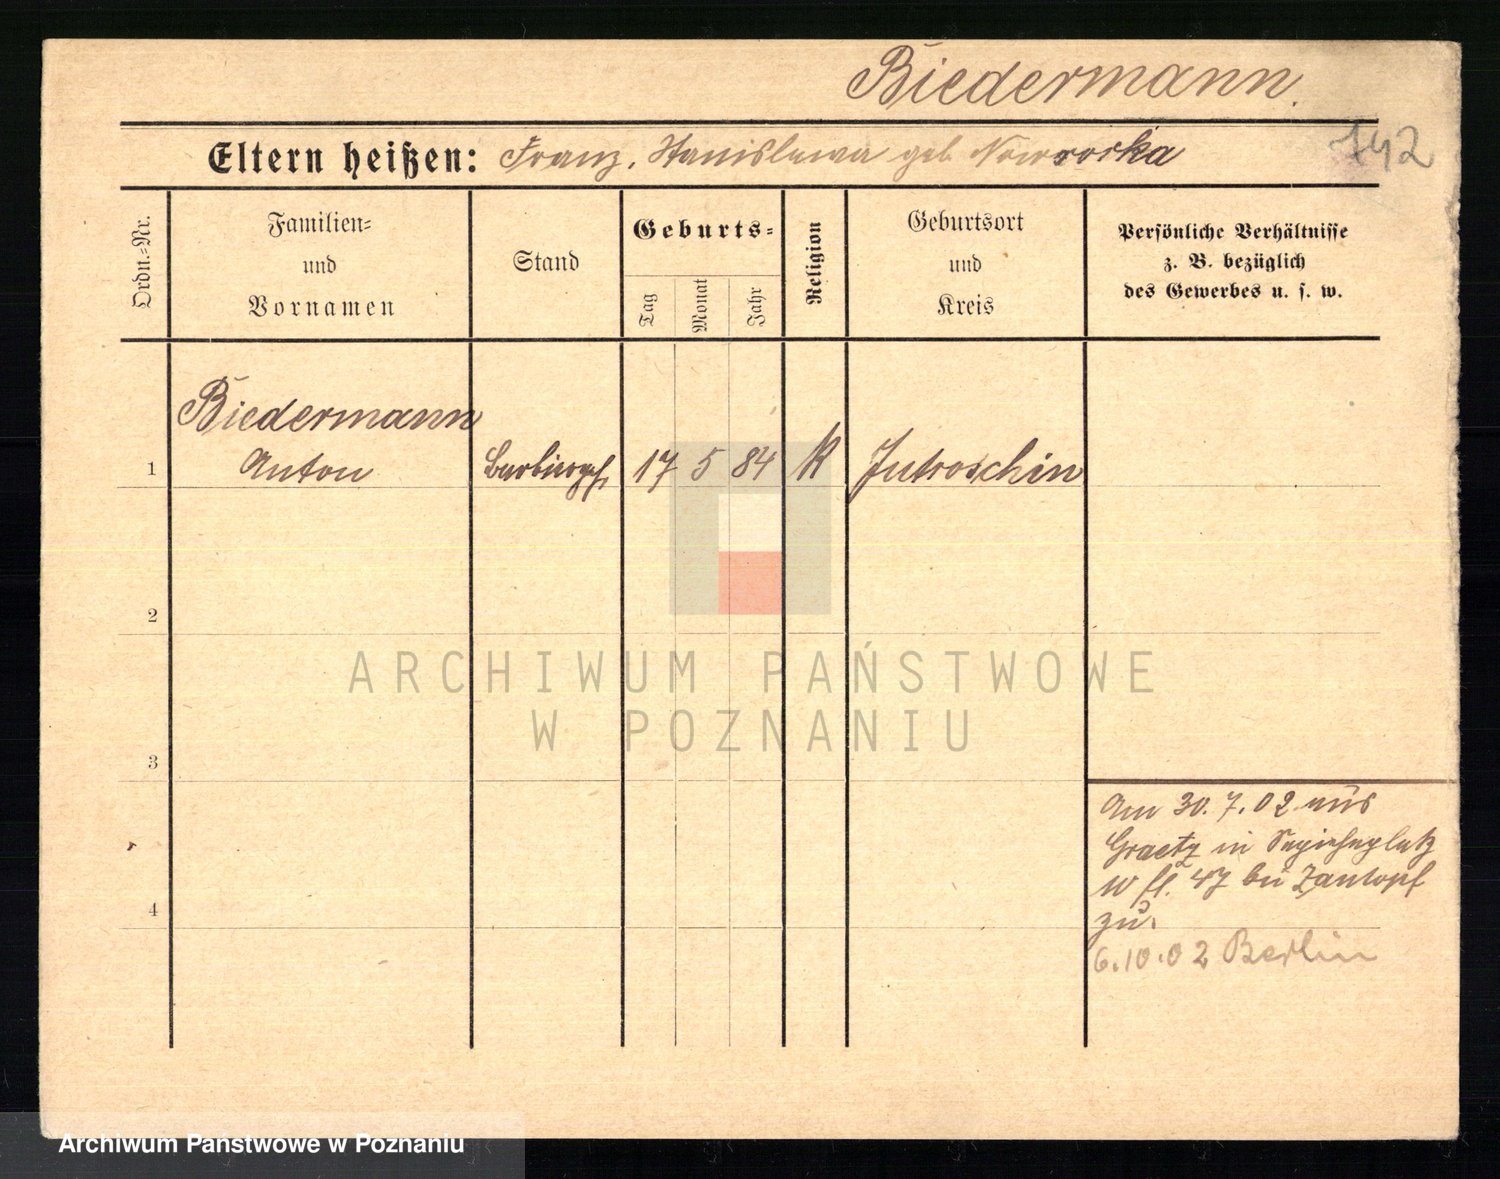 Biedermann.
742
Eltern heißen: Franz, Stanislawa geb Nowrocka
Ordn.-Nr.
Familien- und Vornamen
Stand
Geburts-
Tag
Monat
Jahr
Religion
Geburtsort und Kreis
Persönliche Verhältnisse
z. B. bezüglich
des Gewerbes u. s. w.
Biedermann
1 Anton 17 5 84 K Jutroschin
2
3
4
Am 30.7.02 aus
Graetz in Sapiehaplatz
47 bei Zantopf
zu.
6.10.02 Berlin
ARCHIWUM PAŃSTWOWE
W POZNANIU
Archiwum Państwowe w Poznaniu